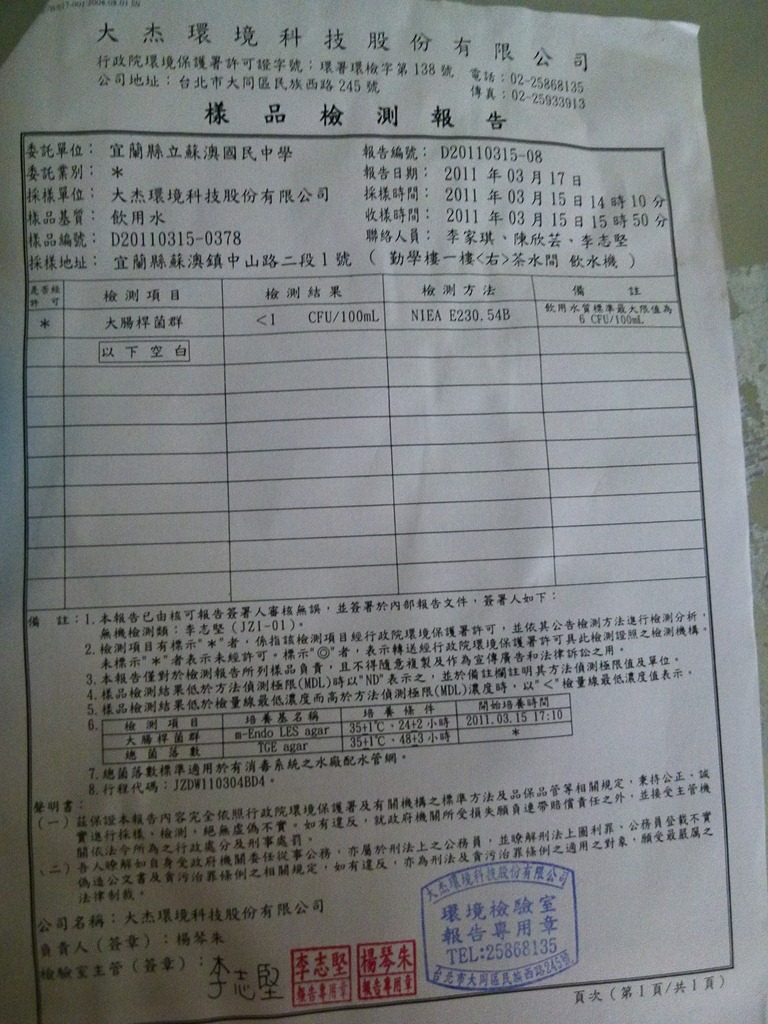 大杰環境科技股份有限公司
行政院環境保護署許可證字號：環署環檢字第138號 電話：02-25868135
公司地址：台北市大同區民族西路245號 傳真：02-25933913
樣品檢測報告
委託單位：宜蘭縣立蘇澳國民中學 報告編號：D20110315-08
委託業別：* 報告日期：2011年03月17日
採樣單位：大杰環境科技股份有限公司 採樣時間：2011年03月15日14時10分
樣品基質：飲用水 收樣時間：2011年03月15日15時50分
樣品編號：D20110315-0378 聯絡人員：李家琪、陳欣芸、李志堅
採樣地址：宜蘭縣蘇澳鎮中山路二段1號（勤學樓一樓<右>茶水間 飲水機）
是否經許可 檢測項目 檢測結果 檢測方法 備註
* 大腸桿菌群 <1 CFU/100mL NIEA E230.54B 飲用水質標準最大限值為6 CFU/100mL
以下空白
備 註：1.本報告已由核可報告簽署人審核無誤，並簽署於內部報告文件，簽署人如下：
無機檢測類：李志堅(JZI-01)。
2.檢測項目有標示"*"者，係指該檢測項目經行政院環境保護署許可，並依其公告檢測方法進行檢測分析，
未標示"*"者表示未經許可。標示"◎"者，表示轉送經行政院環境保護署許可具此檢測證照之檢測機構。
3.本報告僅對於檢測報告所列樣品負責，且不得隨意複製及作為宣傳廣告和法律訴訟之用。
4.樣品檢測結果低於方法偵測極限(MDL)時以"ND"表示之，並於備註欄註明其方法偵測極限值及單位。
5.樣品檢測結果低於檢量線最低濃度而高於方法偵測極限(MDL)濃度時，以"<"檢量線最低濃度值表示。
6. 檢測項目 培養基名稱 培養條件 開始培養時間
大腸桿菌群 m-Endo LES agar 35±1℃、24±2小時 2011.03.15 17:10
總菌落數 TGE agar 35±1℃、48±3小時 *
7.總菌落數標準適用於有消毒系統之水廠配水管網。
8.行程代碼：JZDW110304BD4。
聲明書：
(一)茲保證本報告內容完全依照行政院環境保護署及有關機構之標準方法及品保品管等相關規定，秉持公正、誠
實進行採樣、檢測，絕無虛偽不實。如有違反，就政府機關所受損失願負連帶賠償責任之外，並接受主管機
關依法令所為之行政處分及刑事處罰。
(二)吾人瞭解如自身受政府機關委任從事公務，亦屬於刑法上之公務員，並瞭解刑法上圖利罪、公務員登載不實
偽造公文書及貪污治罪條例之相關規定，如有違反，亦為刑法及貪污治罪條例之適用之對象，願受最嚴厲之
法律制裁。
公司名稱：大杰環境科技股份有限公司
負責人（簽章）：楊琴朱
檢驗室主管（簽章）：李志堅
李志堅
報告專用章
楊琴朱
報告專用章
大杰環境科技股份有限公司
環境檢驗室
報告專用章
TEL:25868135
台北市大同區民族西路245號
頁次（第1頁/共1頁）